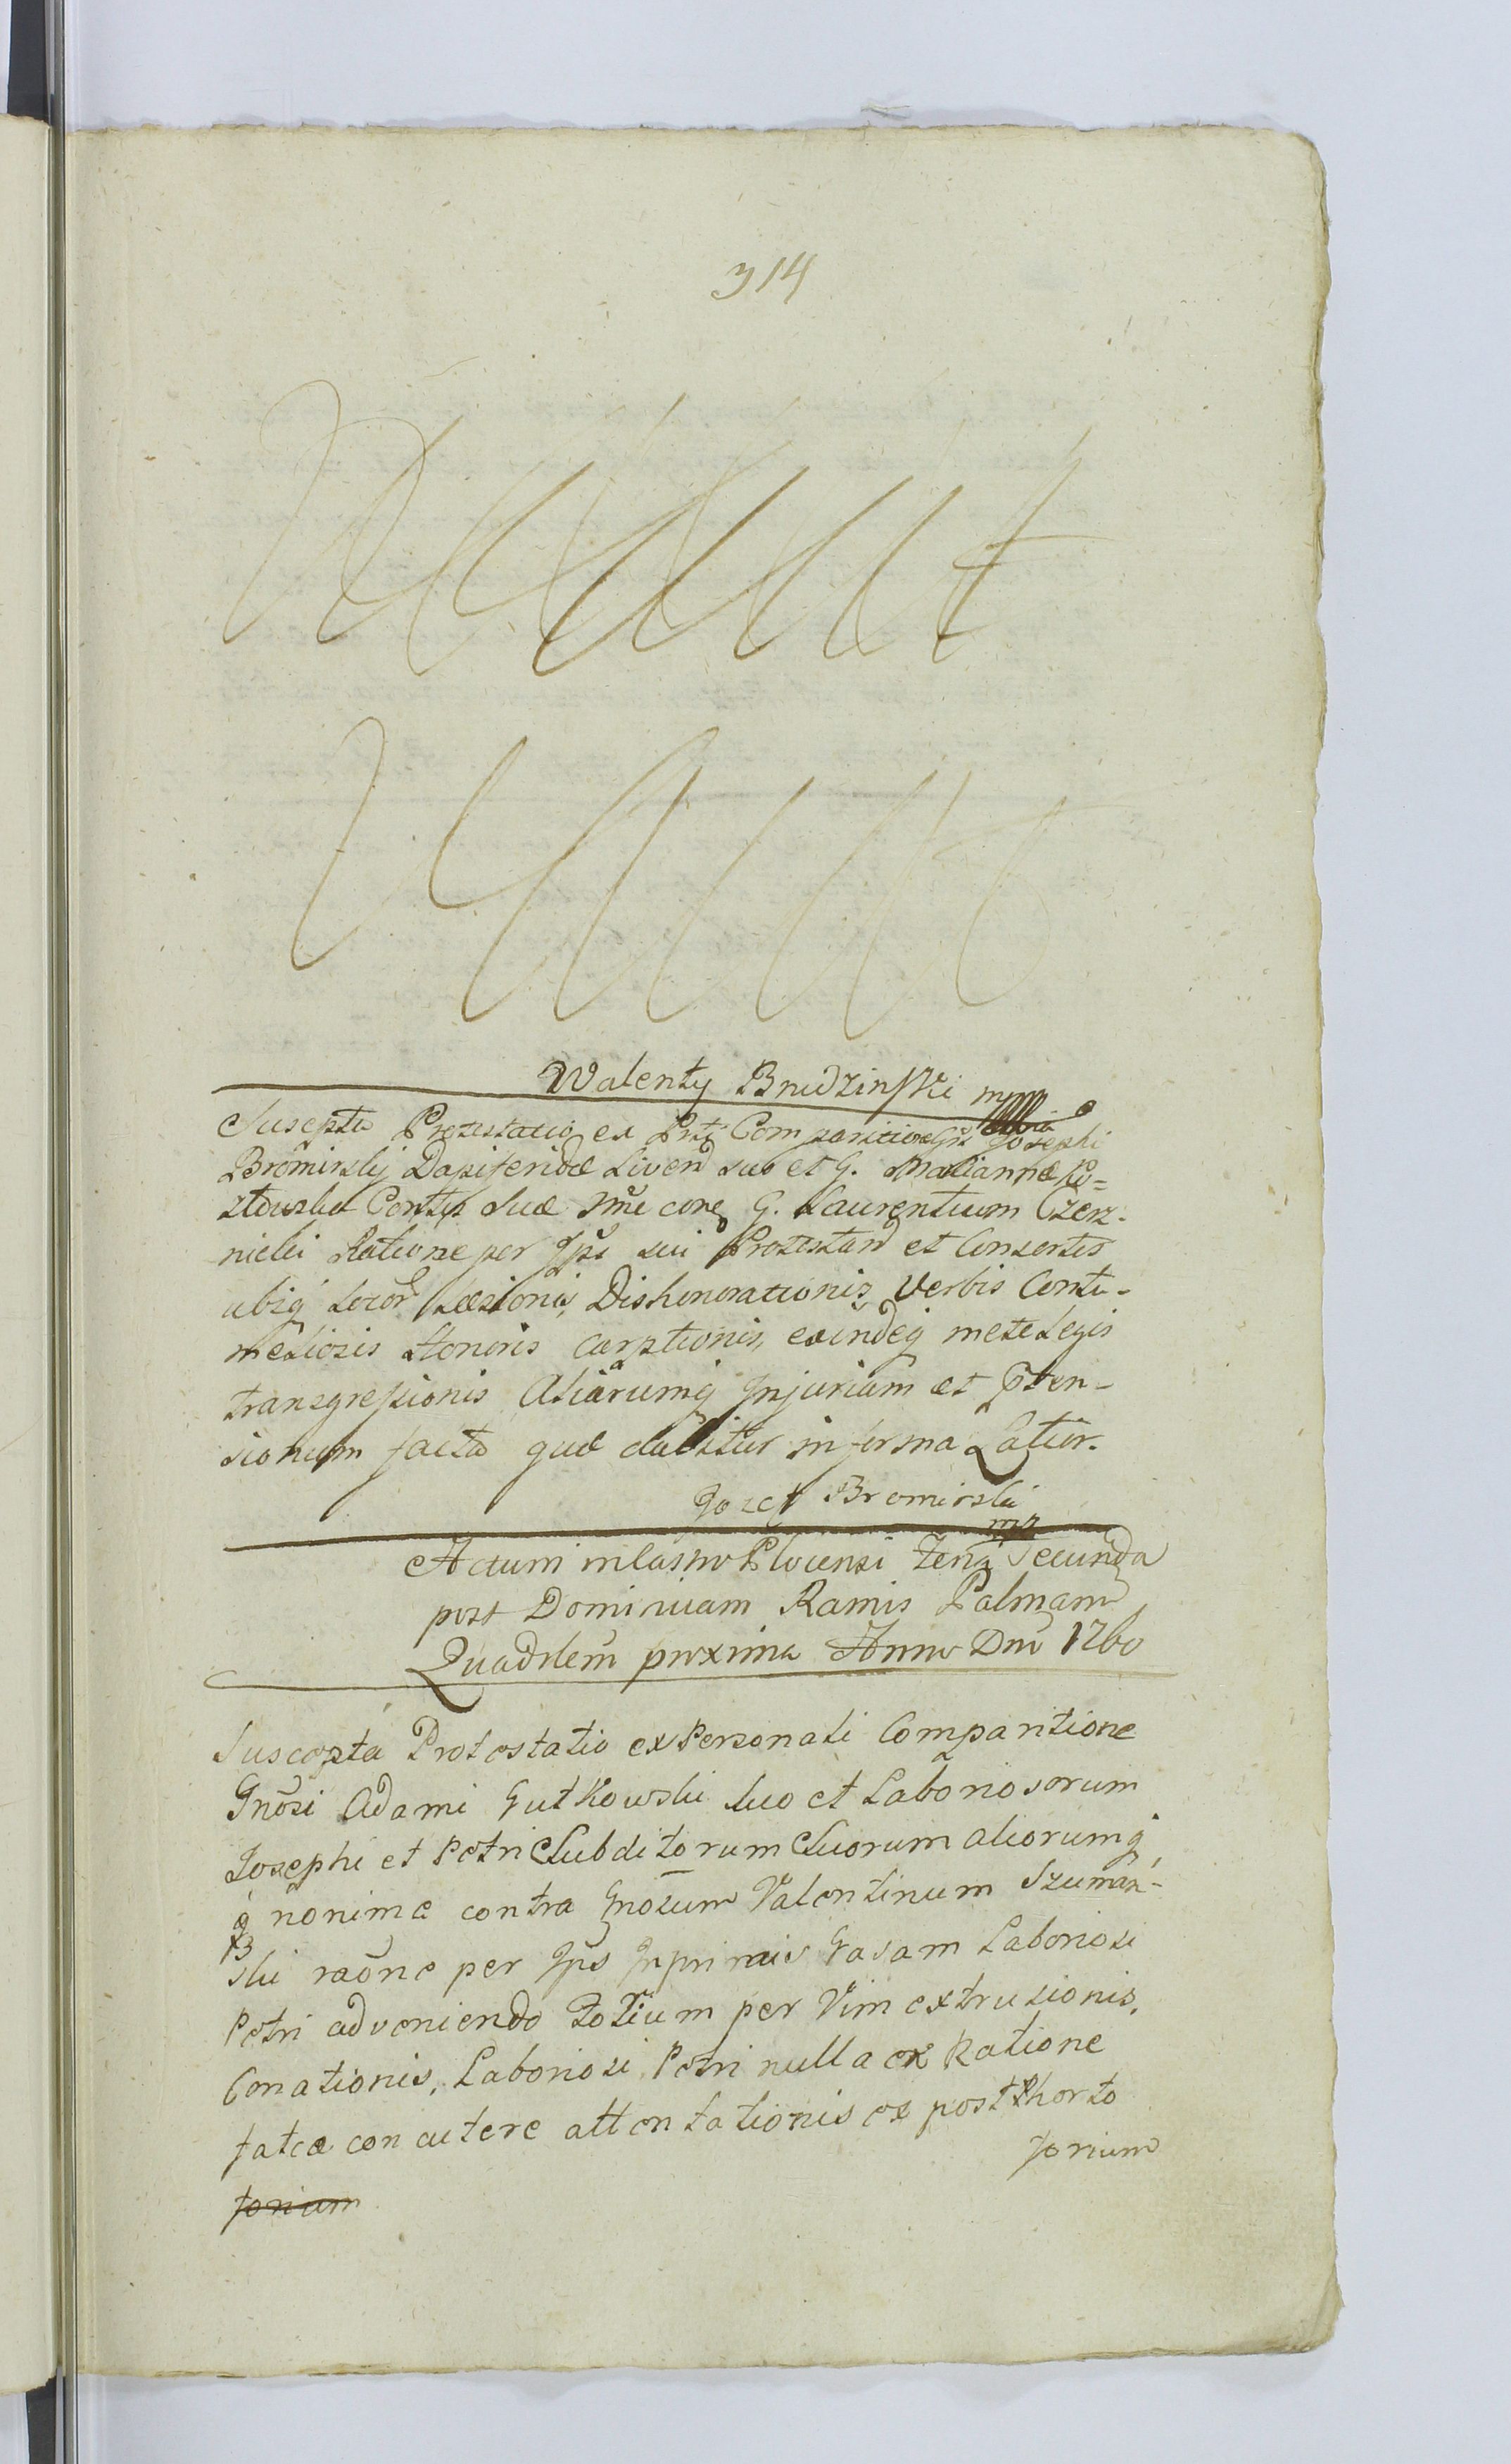 314
Walenty Brudzinski mpp
Suscepta Protestatio ex Prti Comparitione Gsi Josephi
Bromirskij Dapiferidæ Livens suo et G. Mariannæ Ko=
ztowska Contlis suæ Nne cone G. Laurentium Czer-
nicki Ratione per Ips sui Protestan et Consortis
ubiq Locor Læsionis, Dishonorationis Verbis Contu-
meliosis Honoris carptionis, exindeq metæ Legis
transgressionis Aliarumq Injuriam et pten-
sionum facta quæ dabitur in forma Latior.
Jozef Bromirski
mp
Actum in Castro Plocensi Feria Secunda
post Dominicam Ramis Palmam
Quadrlem proxima Anno Dni 1760
Suscepta Protestatio ex Personali Comparitione
Gnosi Adami Gutkowski suo et Laboriosorum
Josephi et Petri Subditorum Suorum aliorumq
q nonime contra Gnosum Valentinum Szuman-
ski raõne per Ips Inprimis Casam Laboriosi
Petri adveniendo Potium per Vim extrusionis,
Conationis, Laboriosi Petri nulla ex Ratione
fatæ concutere attentationis ex post hor to
forium
forium